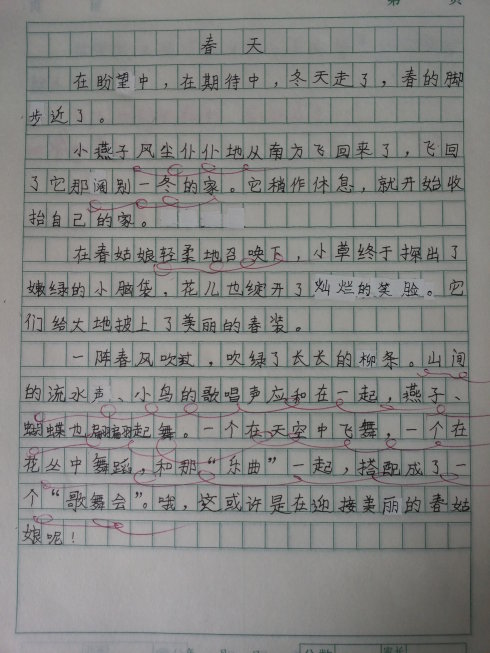 春天
在盼望中，在期待中，冬天走了，春的脚
步近了。
小燕子风尘仆仆地从南方飞回来了，飞回
了它那阔别一冬的家。它稍作休息，就开始收
拾自己的家。
在春姑娘轻柔地召唤下，小草终于探出了
嫩绿的小脑袋，花儿也绽开了灿烂的笑脸。它
们给大地披上了美丽的春装。
一阵春风吹过，吹绿了长长的柳条。山间
的流水声、小鸟的歌唱声应和在一起，燕子、
蝴蝶也翩翩起舞。一个在天空中飞舞，一个在
花丛中舞蹈，和那“乐曲”一起，搭配成了一
个“歌舞会”。哦，这或许是在迎接美丽的春姑
娘呢！